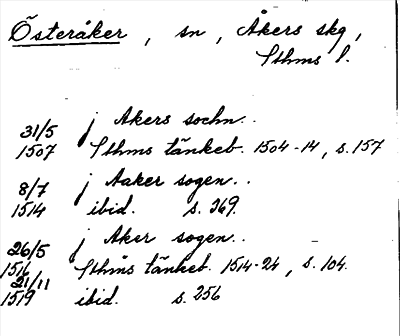 Österåker, sn, Åkers skg,
Sthms l.
31/5 j Akers sochn..
1507 Sthms tänkeb. 1504-14, s. 157
8/7 j Aaker sogen..
1514 ibid. s. 369.
26/5 j Aker sogen..
1516 Sthms tänkeb. 1514-24, s. 104.
21/11
1519 ibid. s. 256